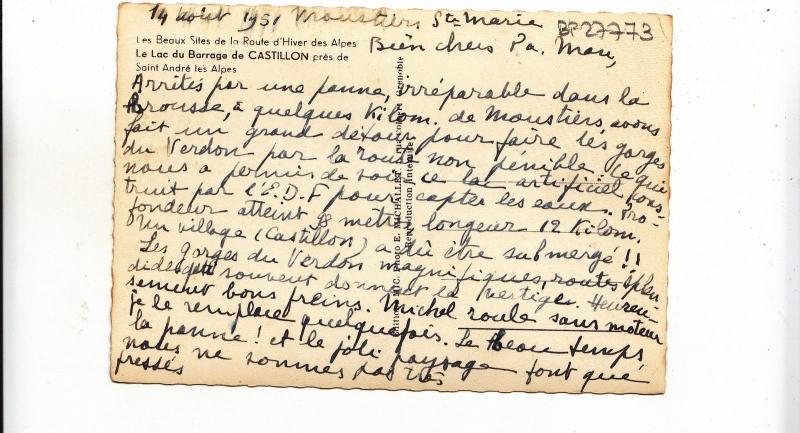 14 Août 1951 Moustiers Ste Marie
BP 27773
Les Beaux Sites de la Route d'Hiver des Alpes
Le Lac du Barrage de CASTILLON près de
Saint André les Alpes
Bien chers Pa. Man,
Arrêtés par une panne, irréparable dans la
brousse, à quelques Kilom. de Moustiers, avons
fait un grand détour pour faire les gorges
du Verdon par la route non pénible. Ce qui
nous a permis de voir ce lac artificiel, cons-
truit par l'E.D.F pour capter les eaux. Pro-
fondeur atteint mètres longeur 12 Kilom.
Un village (Castillon) a dû être submergé!!
Les gorges du Verdon magnifiques, routes splen
dides souvent donnent le vertige. Heureu-
sement bons freins. Michel roule sans moteur
je le remplace quelquefois. Le beau temps,
la panne! et le joli paysage font que
nous ne sommes pas très
pressés
Editions photo E. MICHALLET Grenoble
Reproduction interdite